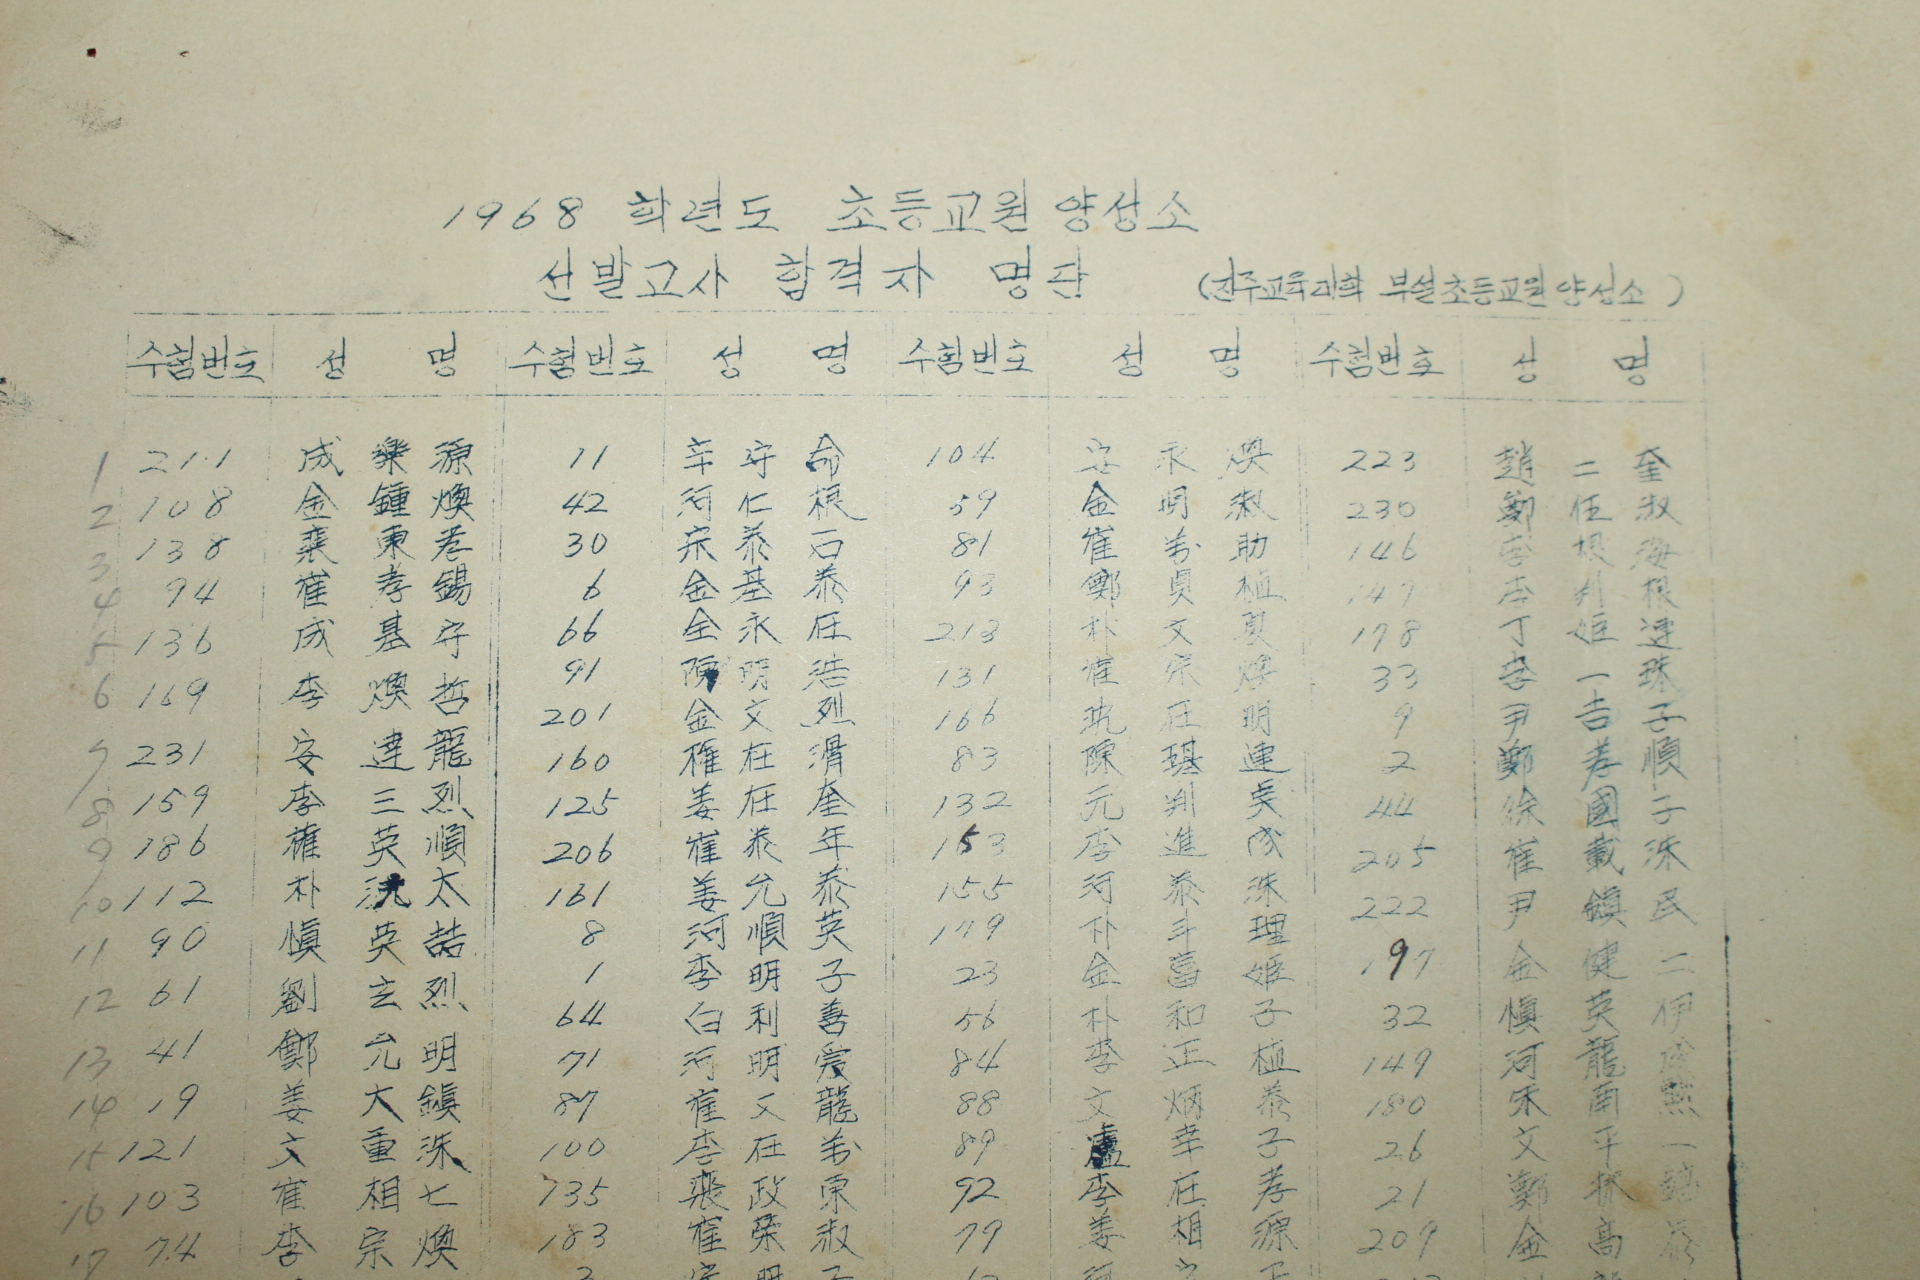 1968 학년도 초등교원양성소
선발고사 합격자 명단 (진주교육대학 부설초등교원양성소)
수험번호 성 명 수험번호 성 명 수험번호 성 명 수험번호 성 명
1 211 成樂源 11 辛守命 104 安永煥 223 趙二奎
2 108 金鍾煥 42 河仁根 59 金明淑 230 鄭任淑
3 138 裵東孝 30 宋泰石 81 崔萬助 146 李根海
4 94 崔孝錫 6 金基泰 93 鄭貞植 147 李判根
5 136 成基守 66 全永在 213 朴文夏 178 丁姬連
6 169 李煥哲 91 陳明浩 131 崔宗煥 33 李一珠
7 231 安達龍 201 金文烈 166 在明 9 尹吉子
8 159 李三烈 160 權在滑 83 陳琪連 2 鄭孝順
9 186 權英順 125 姜在奎 132 元判吳 44 徐國子
10 112 朴太 206 崔泰年 153 李進成 205 崔載洙
11 90 愼英喆 161 姜允泰 155 河泰洙 222 尹鎭民
12 61 劉玄烈 8 河順英 179 朴斗理 197 金健二
13 41 鄭允明 1 李明子 23 金菖姬 32 愼英伊
14 19 姜大鎭 64 白利善 56 朴和子 149 河龍
15 121 文重洙 71 河明愛 84 李正植 180 宋南熙
16 103 崔相七 87 崔文龍 88 文炳泰 26 文平一
17 74 李宗煥 100 李在萬 89 盧幸子 21 鄭
735 裵政東 92 李在孝 209 金高
183 崔榮淑 79 姜相源